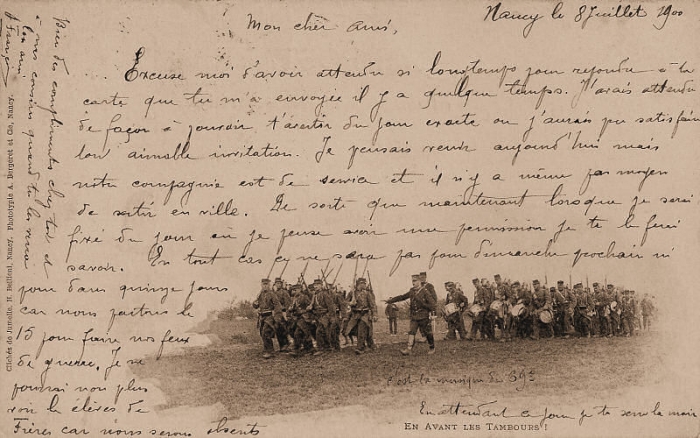 Nancy le 8 Juillet 1900
Mon cher ami,
Excuse moi d'avoir attendu si longtemps pour répondre à ta
carte que tu m'a envoyée il y a quelque temps. J'avais attendu
de façon à pouvoir t'avertir du jour exacte ou j'aurais pu satisfaire
ton aimable invitation. Je pensais venir aujourd'hui mais
notre compagnie est de service et il n'y a même pas moyen
de sortir en ville. De sorte que maintenant lorsque je serai
fixé du jour où je pense avoir une permission je te le ferai
savoir. En tout cas ce ne sera pas pour dimanche prochain ni
pour dans quinze jours
car nous partons le
15 pour faire nos feux
de guerre, je ne
pourrai non plus
voir les élèves de
Frères car nous serons absents
En attendant ce jour je te serre la main
c'est la musique du 39e
EN AVANT LES TAMBOURS !
Bien des compliments chez toi et
à nos cousins quand tu les verra
ton ami
Clichés de Jumelle, H. Bellieni, Nancy. Phototypie A. Bergeret et Cie, Nancy.